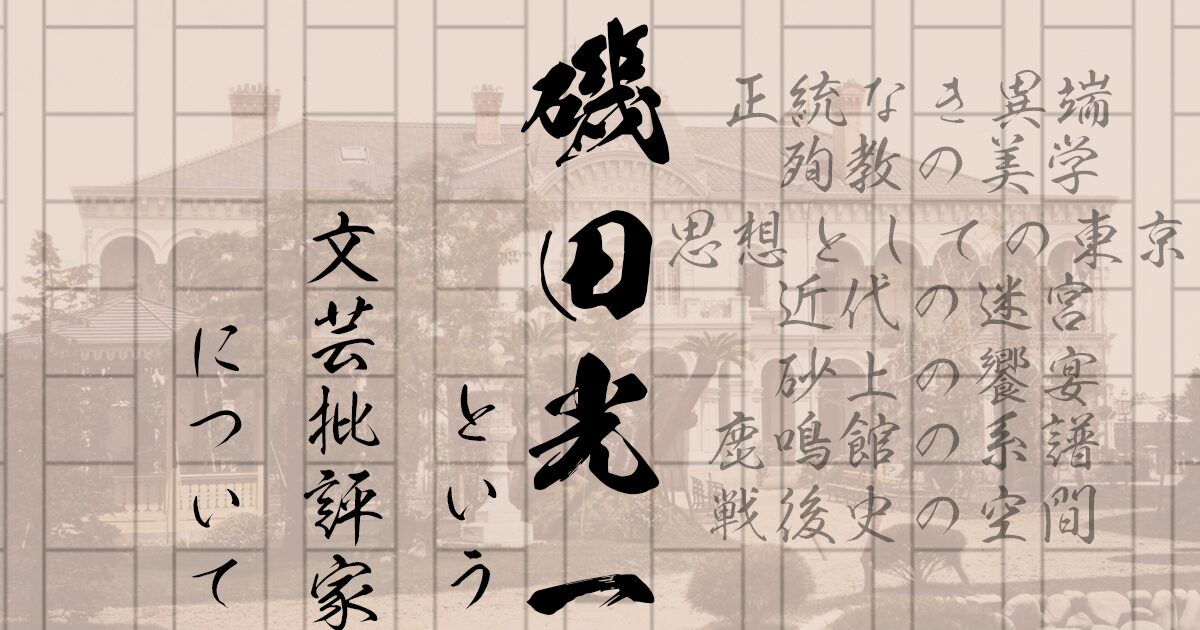 磯田光一
という
文芸批評家
について
正統なき異端
殉教の美学
思想としての東京
近代の迷宮
砂上の饗宴
鹿鳴館の系譜
戦後史の空間